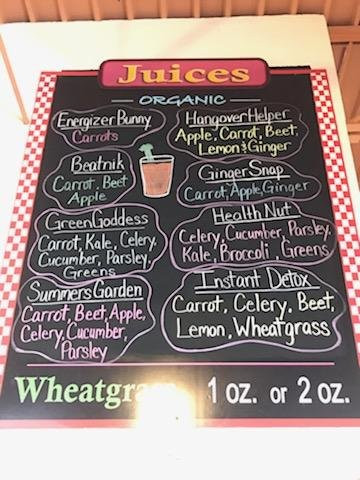 Juices
ORGANIC
Energizer Bunny
Carrots
Beatnik
Carrot, Beet
Apple
Green Goddess
Carrot, Kale, Celery,
Cucumber, Parsley,
Greens
Summers Garden
Carrot, Beet, Apple,
Celery, Cucumber,
Parsley
Hangover Helper
Apple, Carrot, Beet,
Lemon & Ginger
Ginger Snap
Carrot, Apple, Ginger
Health Nut
Celery, Cucumber, Parsley,
Kale, Broccoli, Greens
Instant Detox
Carrot, Celery, Beet,
Lemon, Wheatgrass
Wheatgrass 1 oz. or 2 oz.